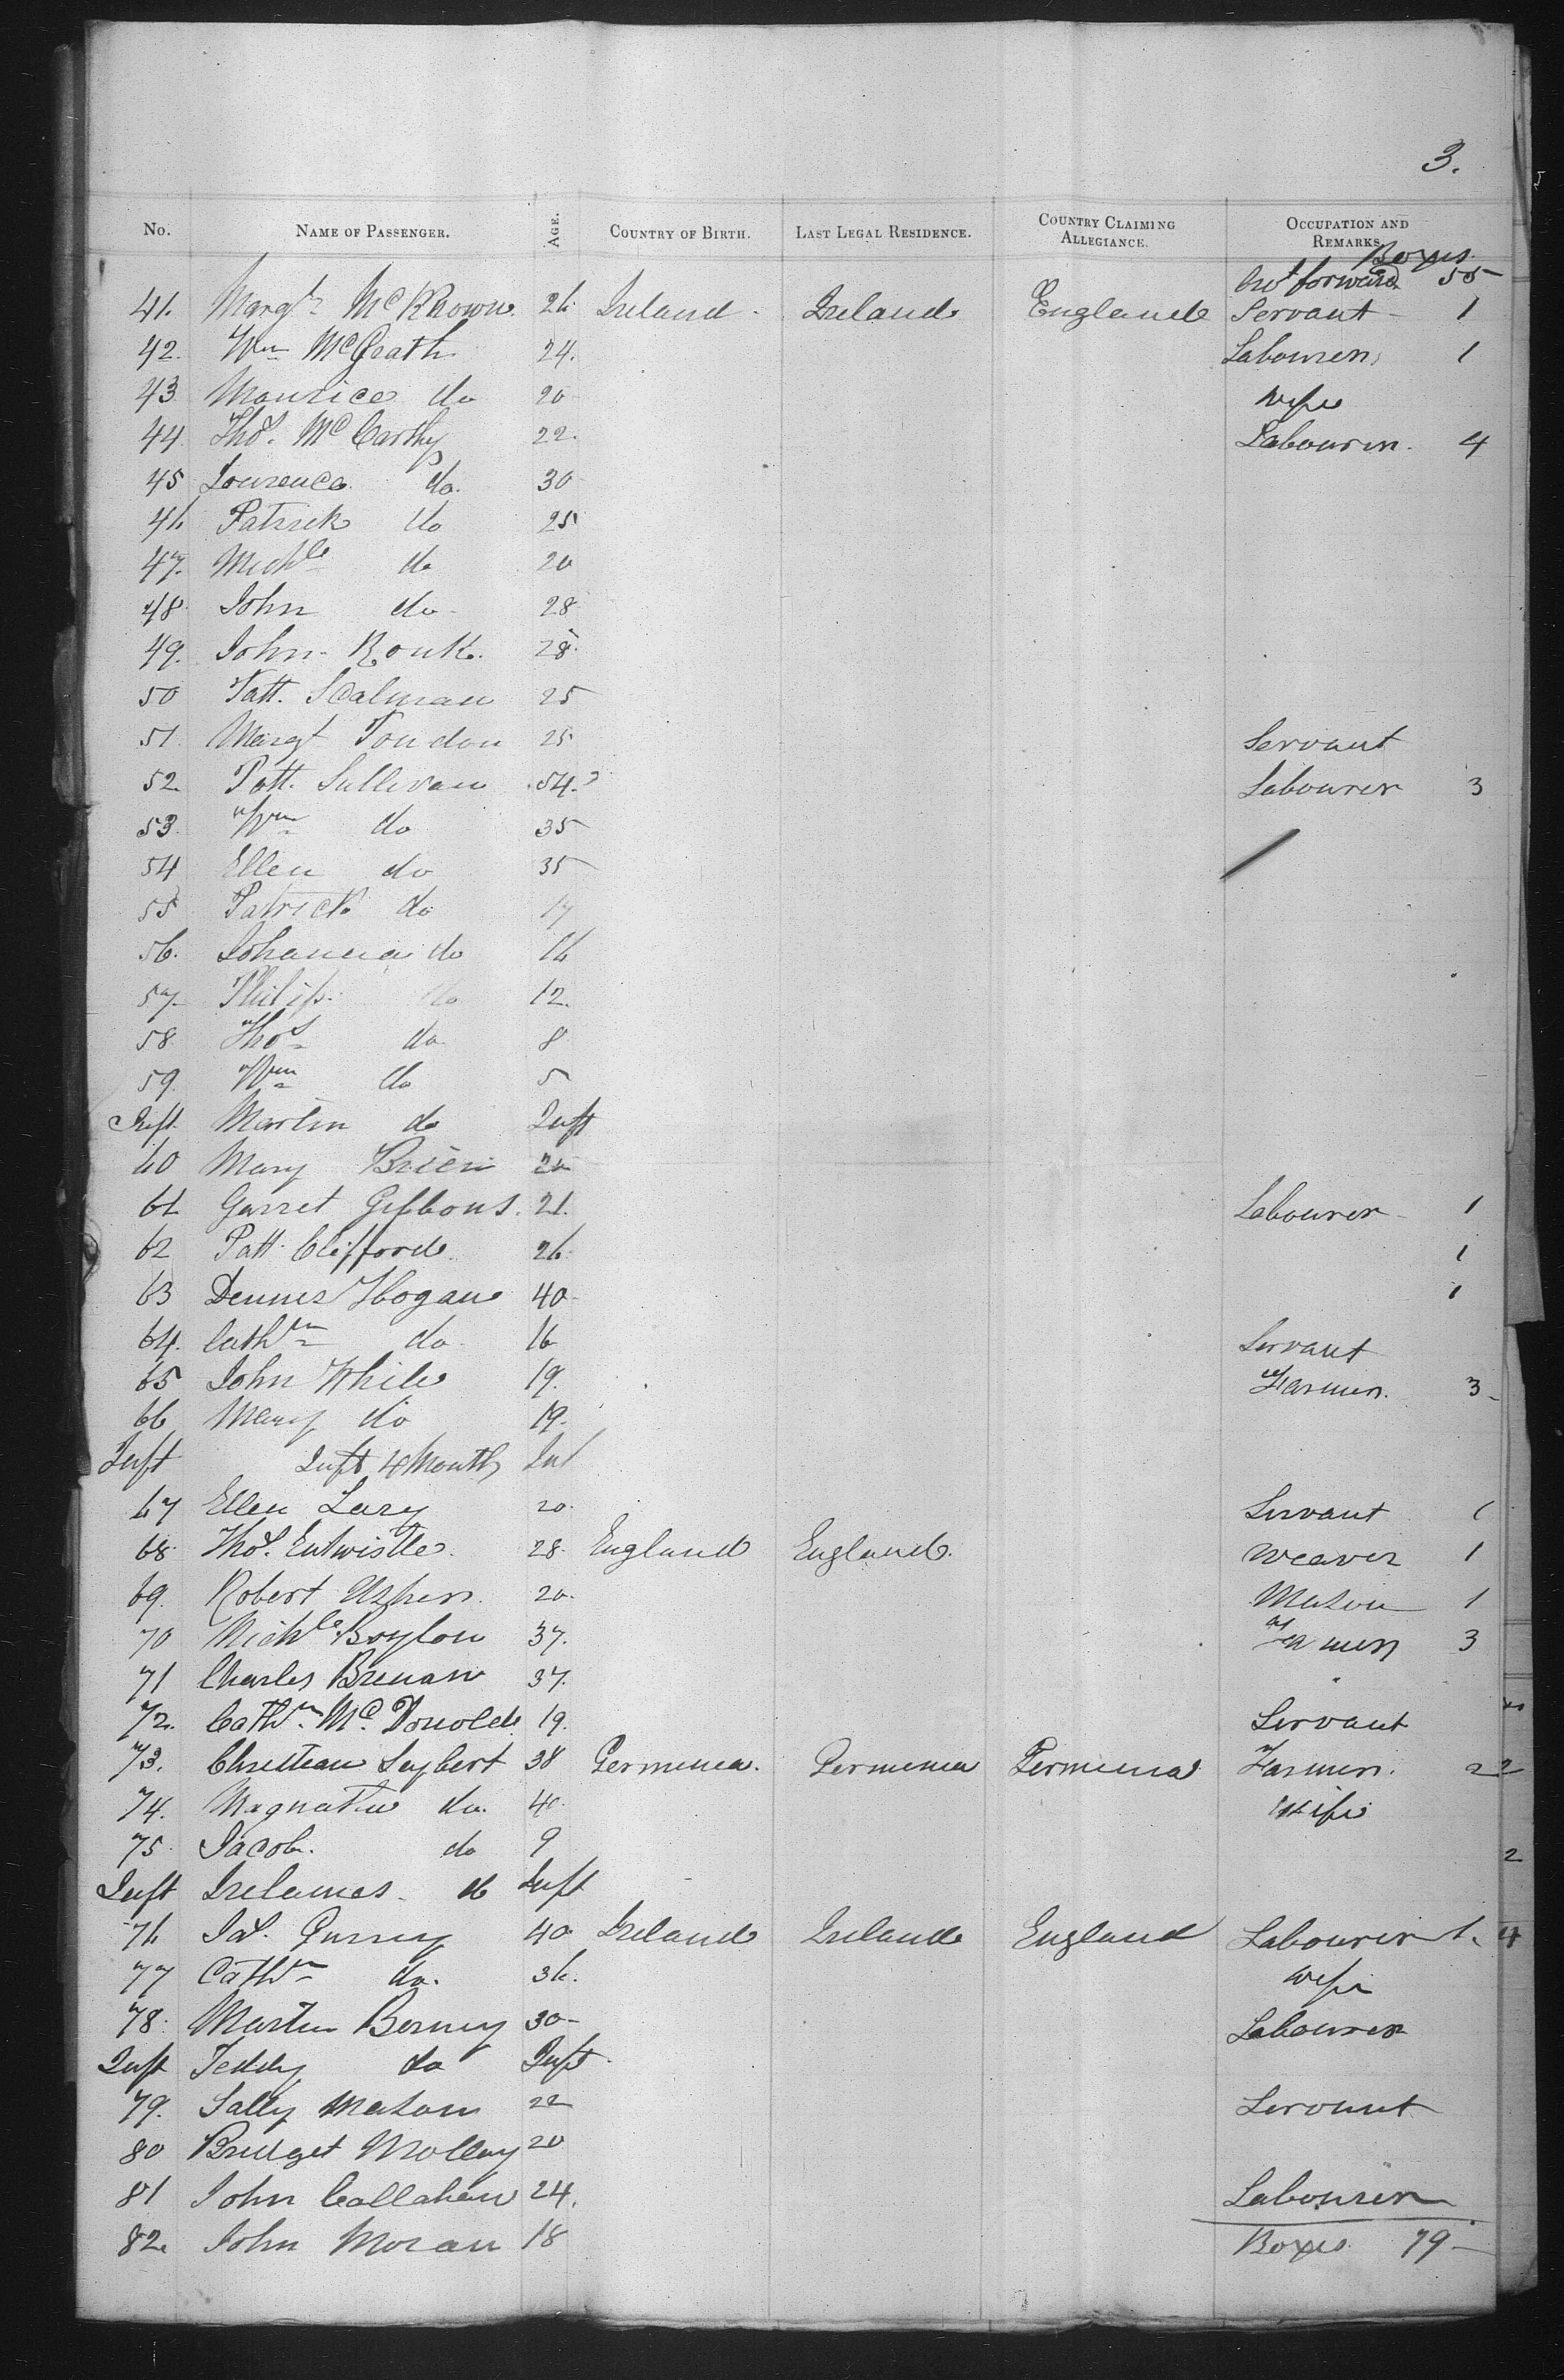 3.
No. NAME OF PASSENGER. AGE. COUNTRY OF BIRTH. LAST LEGAL RESIDENCE. COUNTRY CLAIMING ALLEGIANCE. OCCUPATION AND REMARKS.
Boxes
Bro't forward 55
41. Margt McKeown 26 Ireland Ireland England Servant 1
42. Wm McGrath 24. Labourer 1
43 Maurice do 20 Wife
44 Thos. McCarthy 22. Labourer. 4
45 Lourence do. 30
46 Patrick do 25
47. Michl do 20
48 John do 28
49. John Rouk. 28.
50 Patt. Scalman 25
51 Margt Condon 25 Servant
52. Patt. Sullivan 54. Labourer 3
53 Wm do 35
54 Ellen do 35
55 Patrick do 17
56. Johanna do 16
57 Philip do 12.
58 Thos do 8
59. Wm do 5
Inft Martin do Inft
60 Mary Brien 20
61 Garret Gibbons. 21. Labourer 1
62 Patt. Clifford 26 1
63 Dennis Hogan 40 1
64. Cathrn do 16 Servant
65 John White 19. Farmer. 3
66 Mary do 19.
Inft Inft 4 Months Inf
67 Ellen Lary 20. Servant 1
68 Thos. Entwistle. 28. England England. Weaver 1
69. Robert 20. Mason 1
70 Michl Boylon 37. Farmer 3
71 Charles Brenan 37. "
72. Cathrn McDonold 19. Servant
73. Christian Seybert 38 Germenea. Germenea Germenea Farmer. 2
74. do. 40. Wife
75 Jacob. do 9 2
Inft do Inft
76 Jas. 40 Ireland Ireland England Labourer 1. 4
77 Cathrn do. 36. Wife
78. Martin Berney 30 Labourer
Inft Teddy do Inft
79. Sally Mason 22 Servant
80 Bridget Mollay 20
81 John Callahan 24. Labourer
82. John Moran 18 Boxes 79